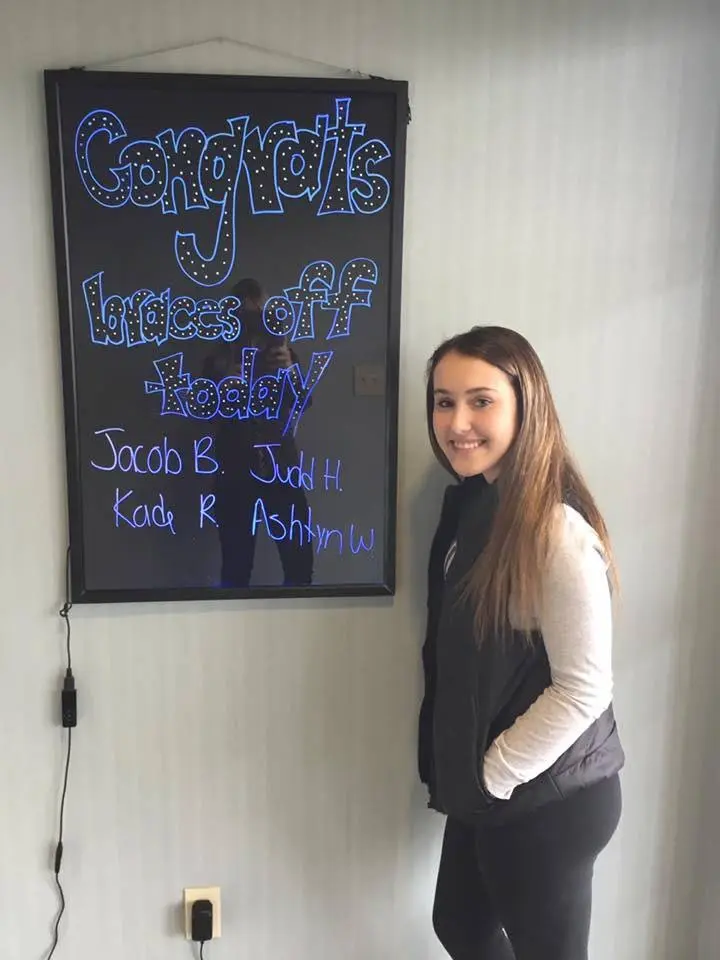 Congrats
braces off
today
Jacob B. Judd H.
Kade R. Ashtyn W.